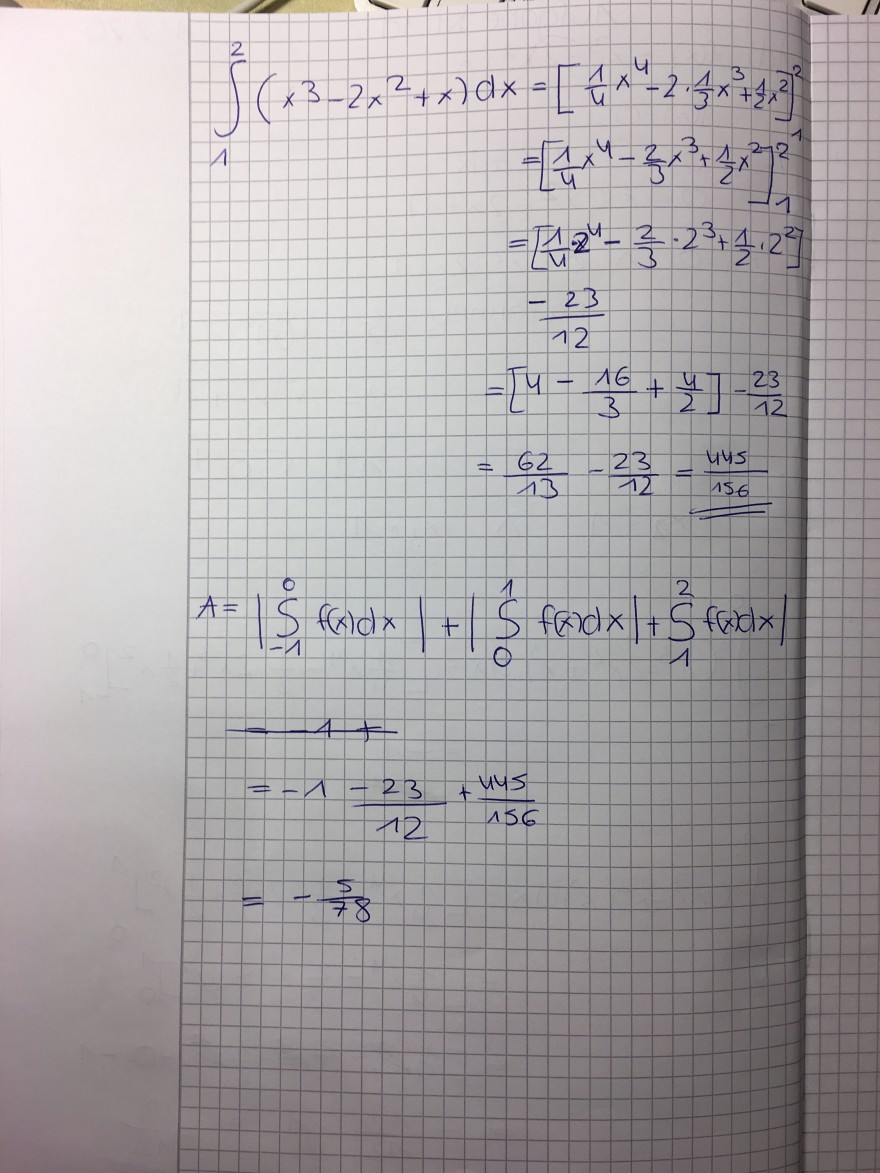 ∫₁² (x³ − 2x² + x) dx = [1/4 x⁴ − 2 · 1/3 x³ + 1/2 x²]₁²
= [1/4 x⁴ − 2/3 x³ + 1/2 x²]₁²
= [1/4 · 2⁴ − 2/3 · 2³ + 1/2 · 2²]
− 23/12
= [4 − 16/3 + 4/2] − 23/12
= 62/13 − 23/12 = 445/156
A = | ∫₋₁⁰ f(x)dx | + | ∫₀¹ f(x)dx | + ∫₁² f(x)dx |
= − 1 +
= −1 − 23/12 + 445/156
= − 5/78